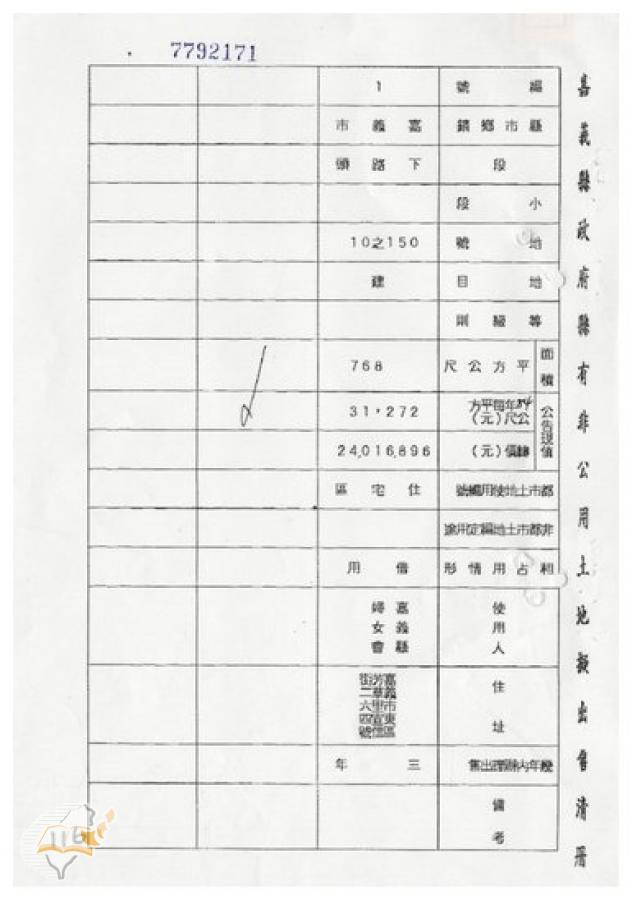 7792171
嘉義縣政府縣有非公用土地擬出售清册
編號 1
縣市鄉鎮 嘉義市
段 下路頭
小段
地號 150之10
地目 建
等級則
面積 平方公尺 768
公告現值 84年每平方公尺(元) 31,272
總價(元) 24,016,896
都市土地使用編號 住宅區
非都市土地編定用途
租占用情形 借用
使用人 嘉義縣婦女會
住址 嘉義市東區芳草里宣信街二六四號
幾年內辦理出售 三年
備考
116